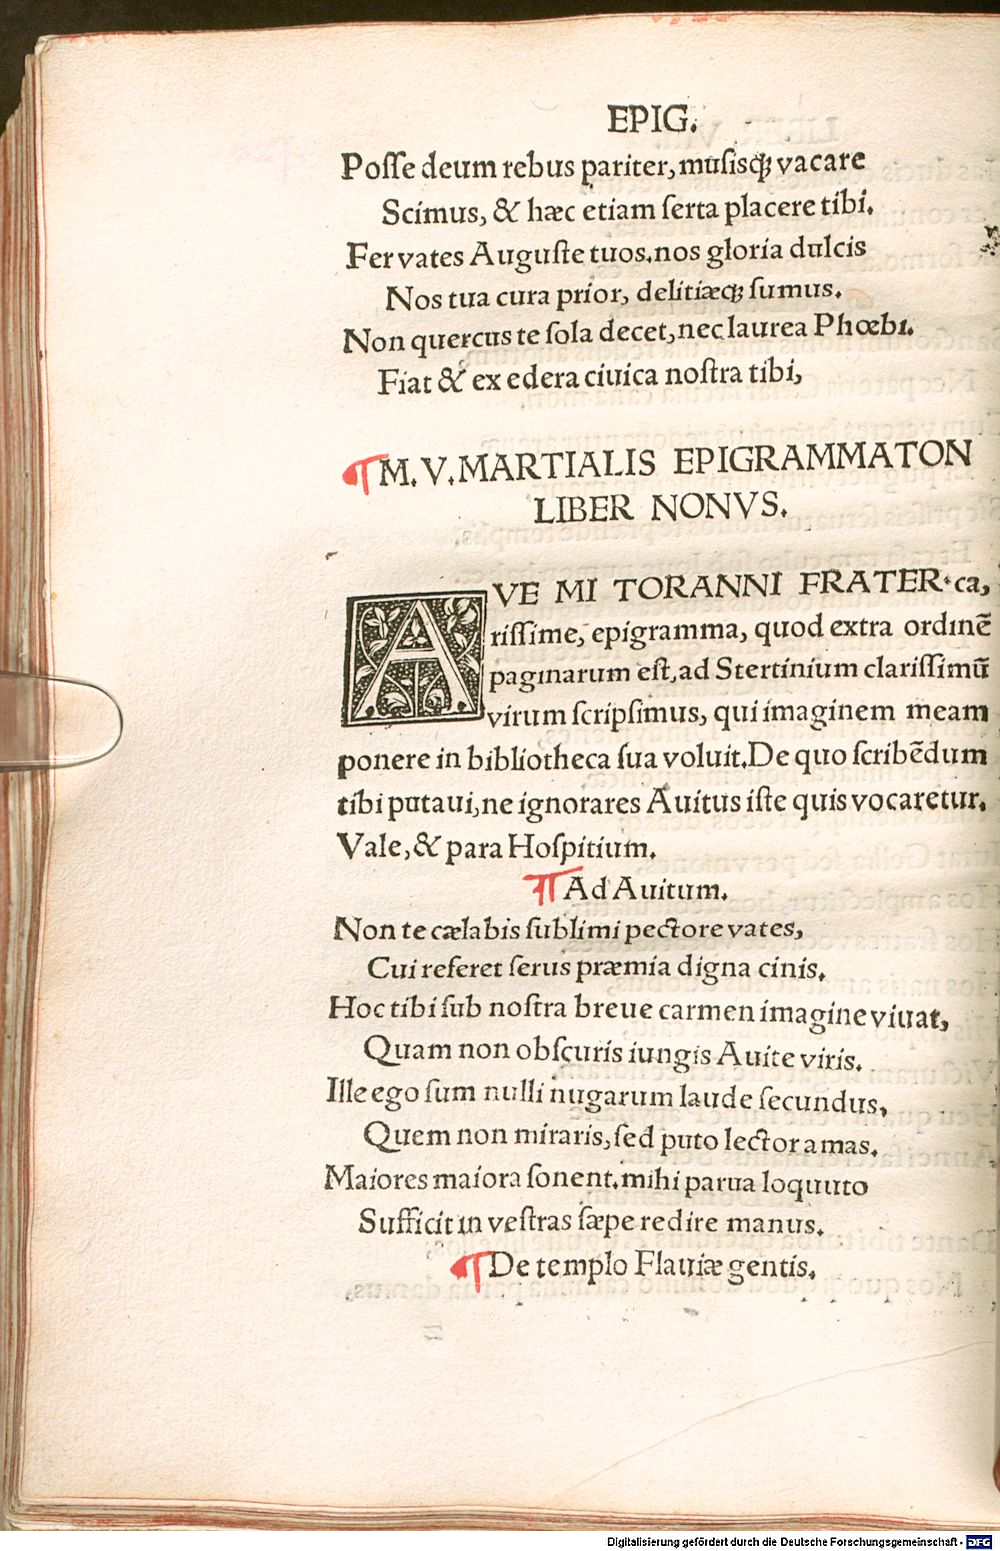 EPIG.
Poſſe deum rebus pariter, muſisqꝫ vacare
Scimus, & hæc etiam ſerta placere tibi.
Fer vates Auguſte tuos.nos gloria dulcis
Nos tua cura prior, delitiæqꝫ ſumus.
Non quercus te ſola decet, nec laurea Phœbı.
Fiat & ex edera ciuica noſtra tibi,
¶M.V.MARTIALIS EPIGRAMMATON
LIBER NONVS.
AVE MI TORANNI FRATER ca,
riſſime, epigramma, quod extra ordinẽ
paginarum eſt, ad Stertinium clariſſimũ
virum ſcripſimus, qui imaginem meam
ponere in bibliotheca ſua voluit.De quo ſcribẽdum
tibi putaui, ne ignorares Auitus iſte quis vocaretur.
Vale, & para Hoſpitium.
¶ Ad Auitum.
Non te cælabis ſublimi pectore vates,
Cui referet ſerus præmia digna cinis.
Hoc tibi ſub noſtra breue carmen imagine viuat,
Quam non obſcuris iungis Auite viris.
Ille ego ſum nulli nugarum laude ſecundus,
Quem non miraris, ſed puto lector amas.
Maiores maiora ſonent.mihi parua loquuto
Sufficit in veſtras ſæpe redire manus.
¶De templo Flauiæ gentis.
Digitalisierung gefördert durch die Deutsche Forschungsgemeinschaft - DFG